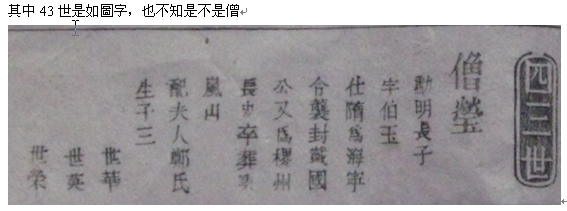 其中 43 世是如圖字，也不知是不是僧
四三世
僧瑩
勳明長子
字伯玉
仕隋爲海寧
令襲封戴國
公又爲稷州
長史卒葬
嵐山
配夫人鄭氏
生子三
世華
世英
世榮